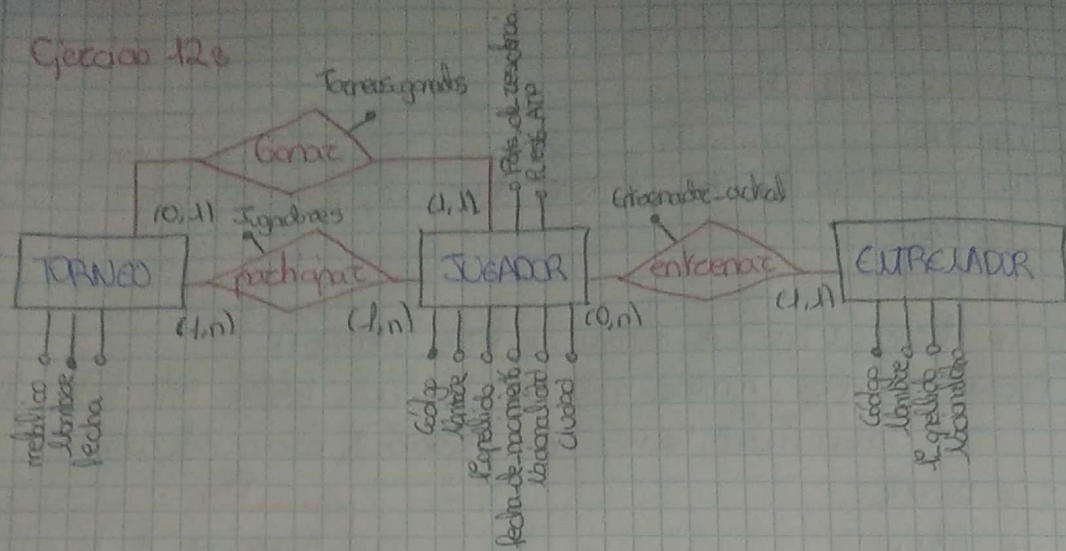 Ejercicio 12:
Torneos_ganados
Ganar
País_de_residencia
Rest_ATP
Entrenador_actual
(0,1)
(1,1)
Jugadores
TORNEO
participar
JUGADOR
entrenar
ENTRENADOR
(1,n)
(1,n)
(0,n)
(1,1)
metálico
Nombre
Fecha
Código
Nombre
Apellido
fecha_de_nacimiento
Nacionalidad
Ciudad
Código
Nombre
Apellido